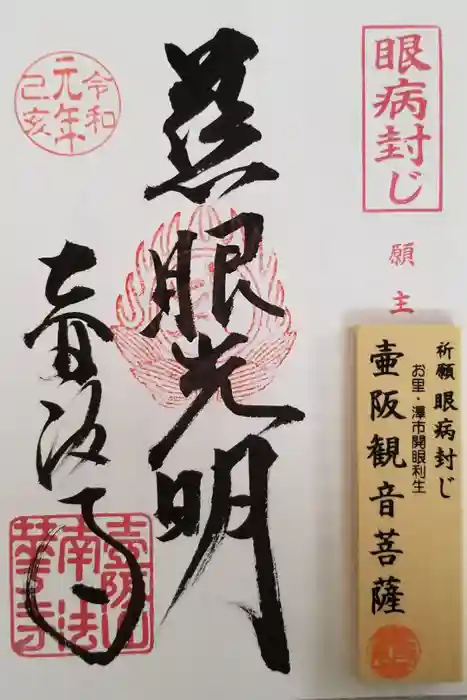 眼病封じ
願主
祈願 眼病封じ
お里・澤市開眼利生
壺阪観音菩薩
慈眼光明
令和
元年
己亥
壺阪寺
壺阪山
南法
華寺